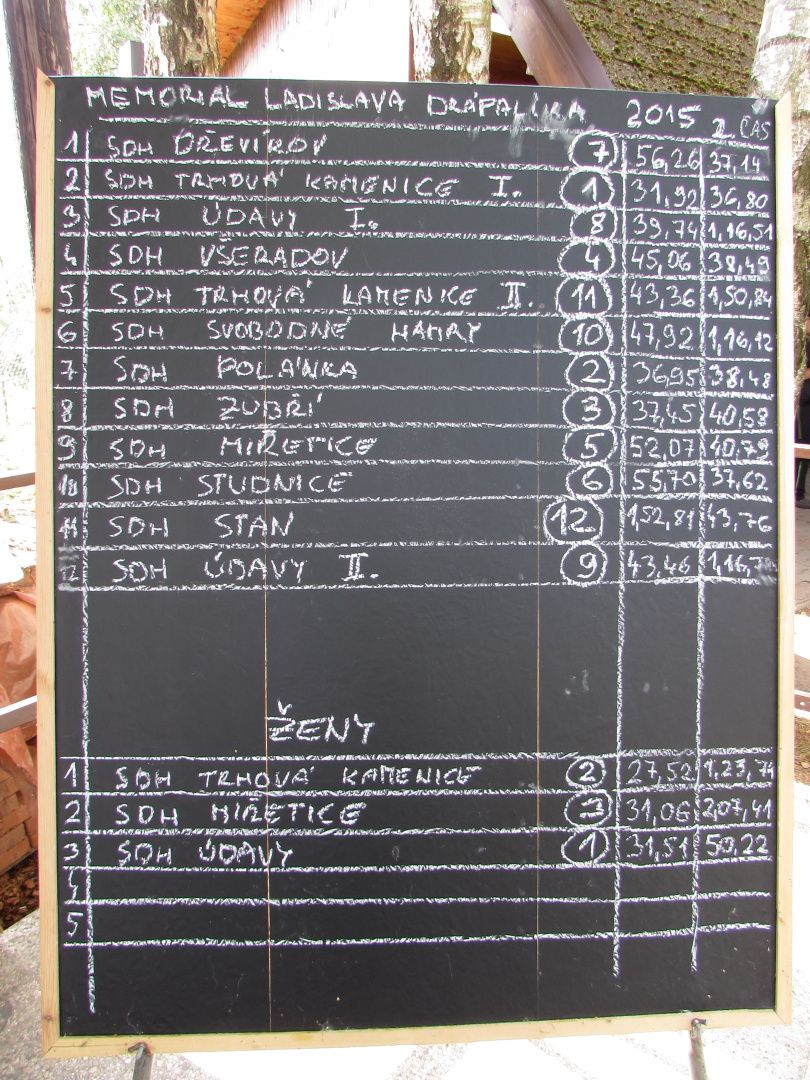 MEMORIAL LADISLAVA DRÁPALÍKA 2015 II. ČAS
1 SDH DŘEVÍKOV 7 56,26 37,14
2 SDH TRHOVÁ KAMENICE I. 1 31,92 36,80
3 SDH ÚDAVY I. 8 39,74 1,16,51
4 SDH VŠERADOV 4 45,06 38,49
5 SDH TRHOVÁ KAMENICE II. 11 43,36 1,50,84
6 SDH SVOBODNÉ HAMRY 10 47,92 1,16,12
7 SDH POLÁNKA 2 36,95 38,48
8 SDH ZUBŘÍ 3 37,45 40,58
9 SDH MIŘETICE 5 52,07 40,79
10 SDH STUDNICE 6 55,70 37,62
11 SDH STAN 12 1,52,81 43,76
12 SDH ÚDAVY II. 9 43,46
ŽENY
1 SDH TRHOVÁ KAMENICE 2 27,52 1,23,74
2 SDH MIŘETICE 3 31,06 2,07,41
3 SDH ÚDAVY 1 31,51 50,22
4
5